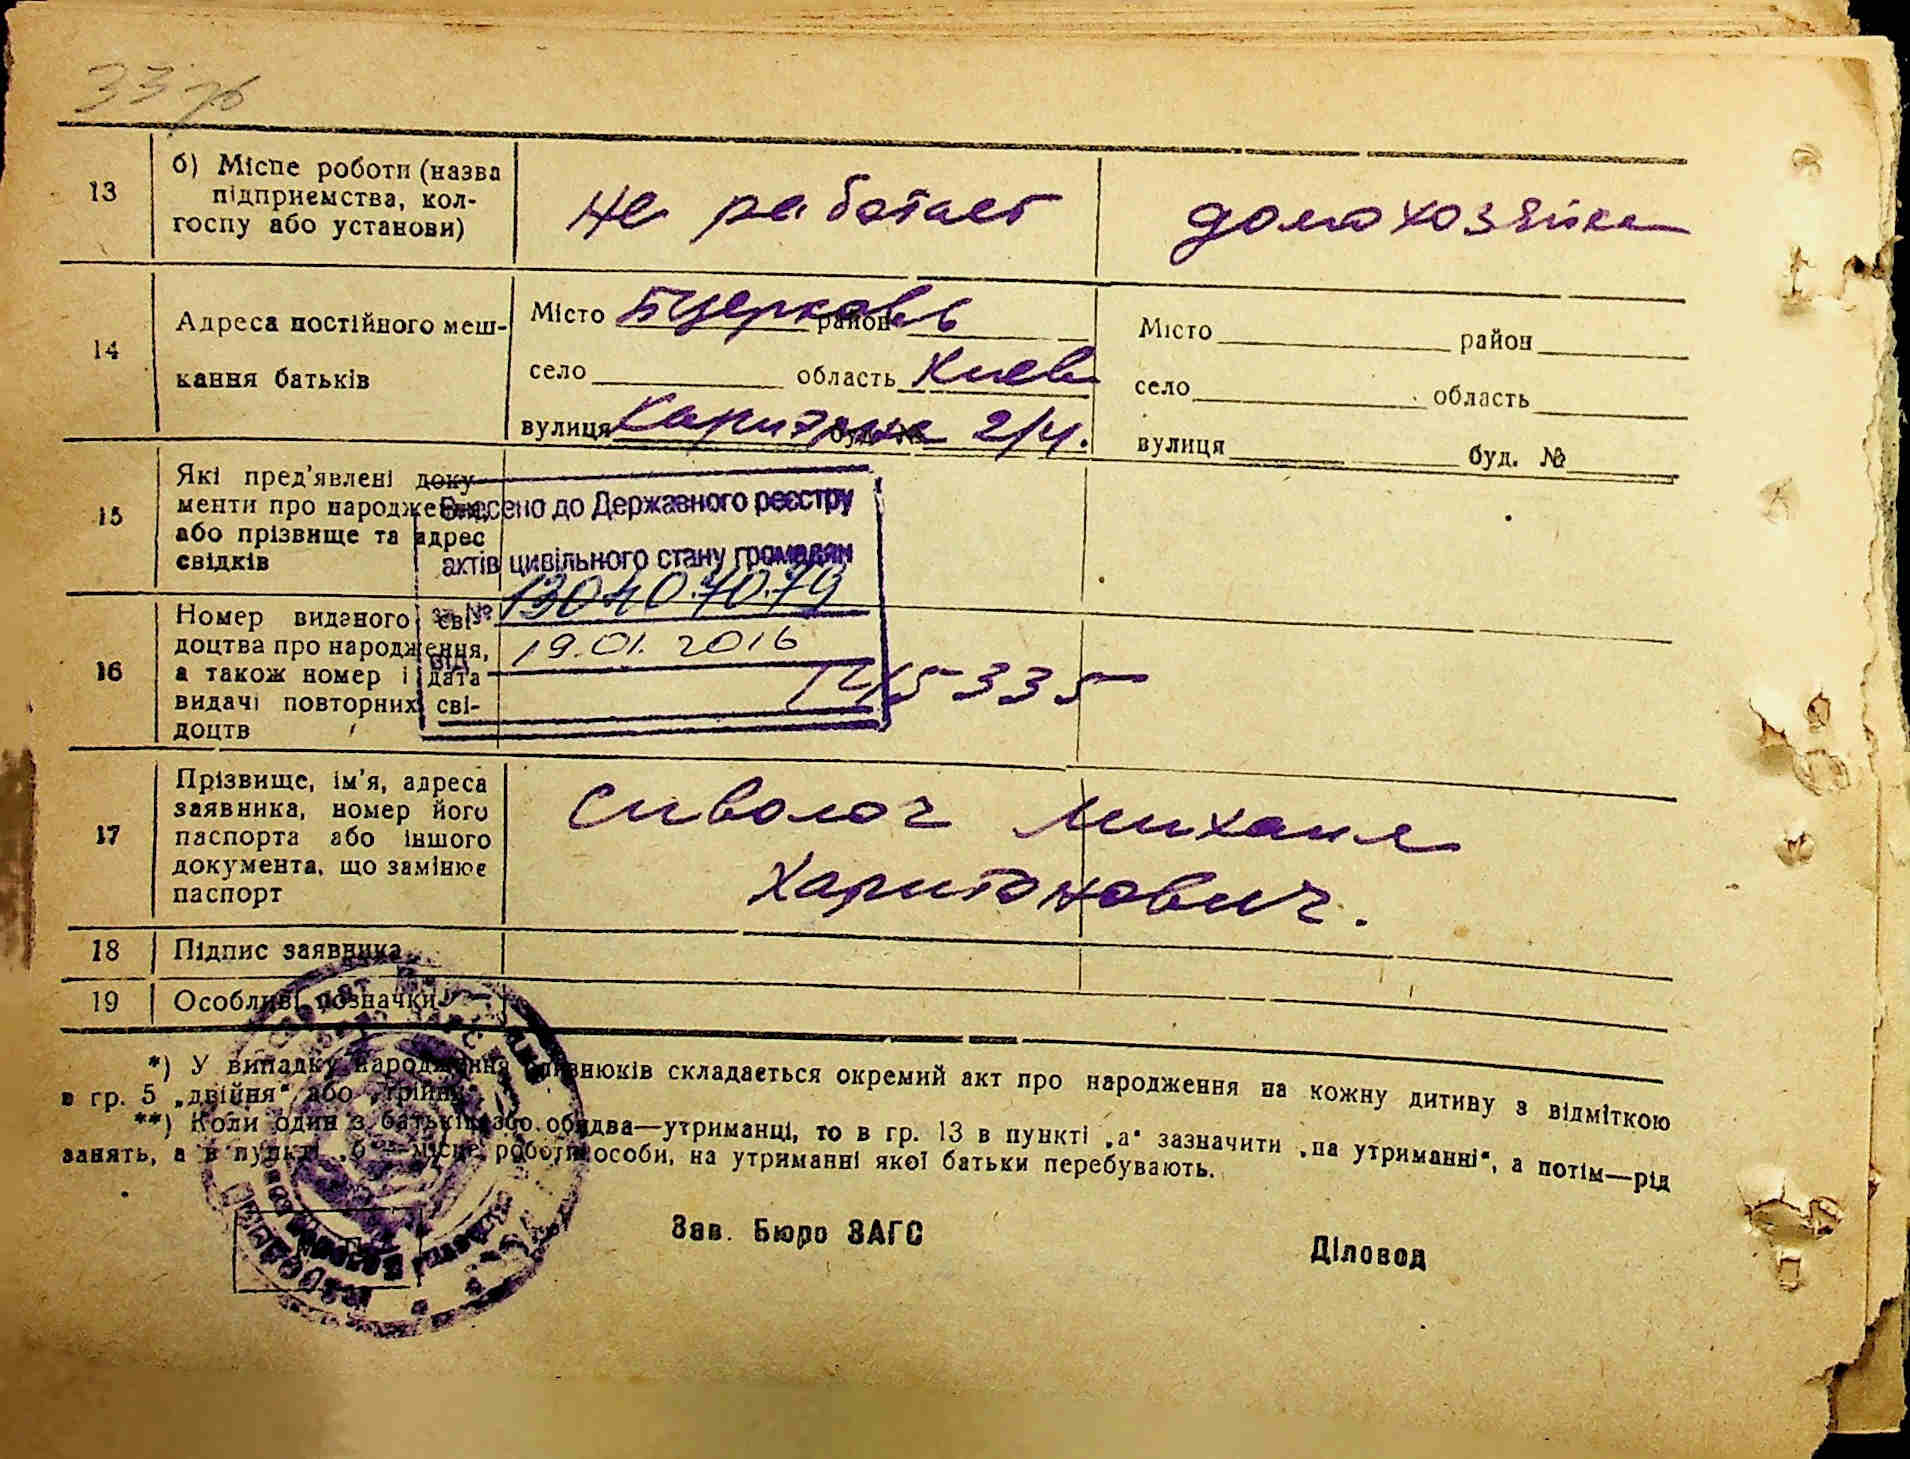 33 зв
13
б) Місце роботи (назва
підприємства, кол-
госпу або установи)
не работает
домохозяйка
14
Адреса постійного меш-
кання батьків
Місто БЦерковь район
село область Киев
вулиця буд. № 2/4.
Місто район
село область
вулиця буд. №
15
Які пред’явлені доку-
менти про народження
або прізвище та адрес
свідків
Внесено до Державного реєстру
актів цивільного стану громадян
за № 130407079
від 19.01.2016
16
Номер виданого сві-
доцтва про народження,
а також номер і дата
видачі повторних сві-
доцтв
17
Прізвище, ім’я, адреса
заявника, номер його
паспорта або іншого
документа, що замінює
паспорт
Сиволоч Михаил
Харитонович.
18
Підпис заявника
19
Особливі позначки
*) У випадку народження близнюків складається окремий акт про народження на кожну дитину з відміткою
в гр. 5 „двійня“ або „трійня“.
**) Коли один з батьків або обидва—утриманці, то в гр. 13 в пункті „а“ зазначити „на утриманні“, а потім—рід
занять, а в пункті „б“—місце роботи особи, на утриманні якої батьки перебувають.
Зав. Бюро ЗАГС
Діловод